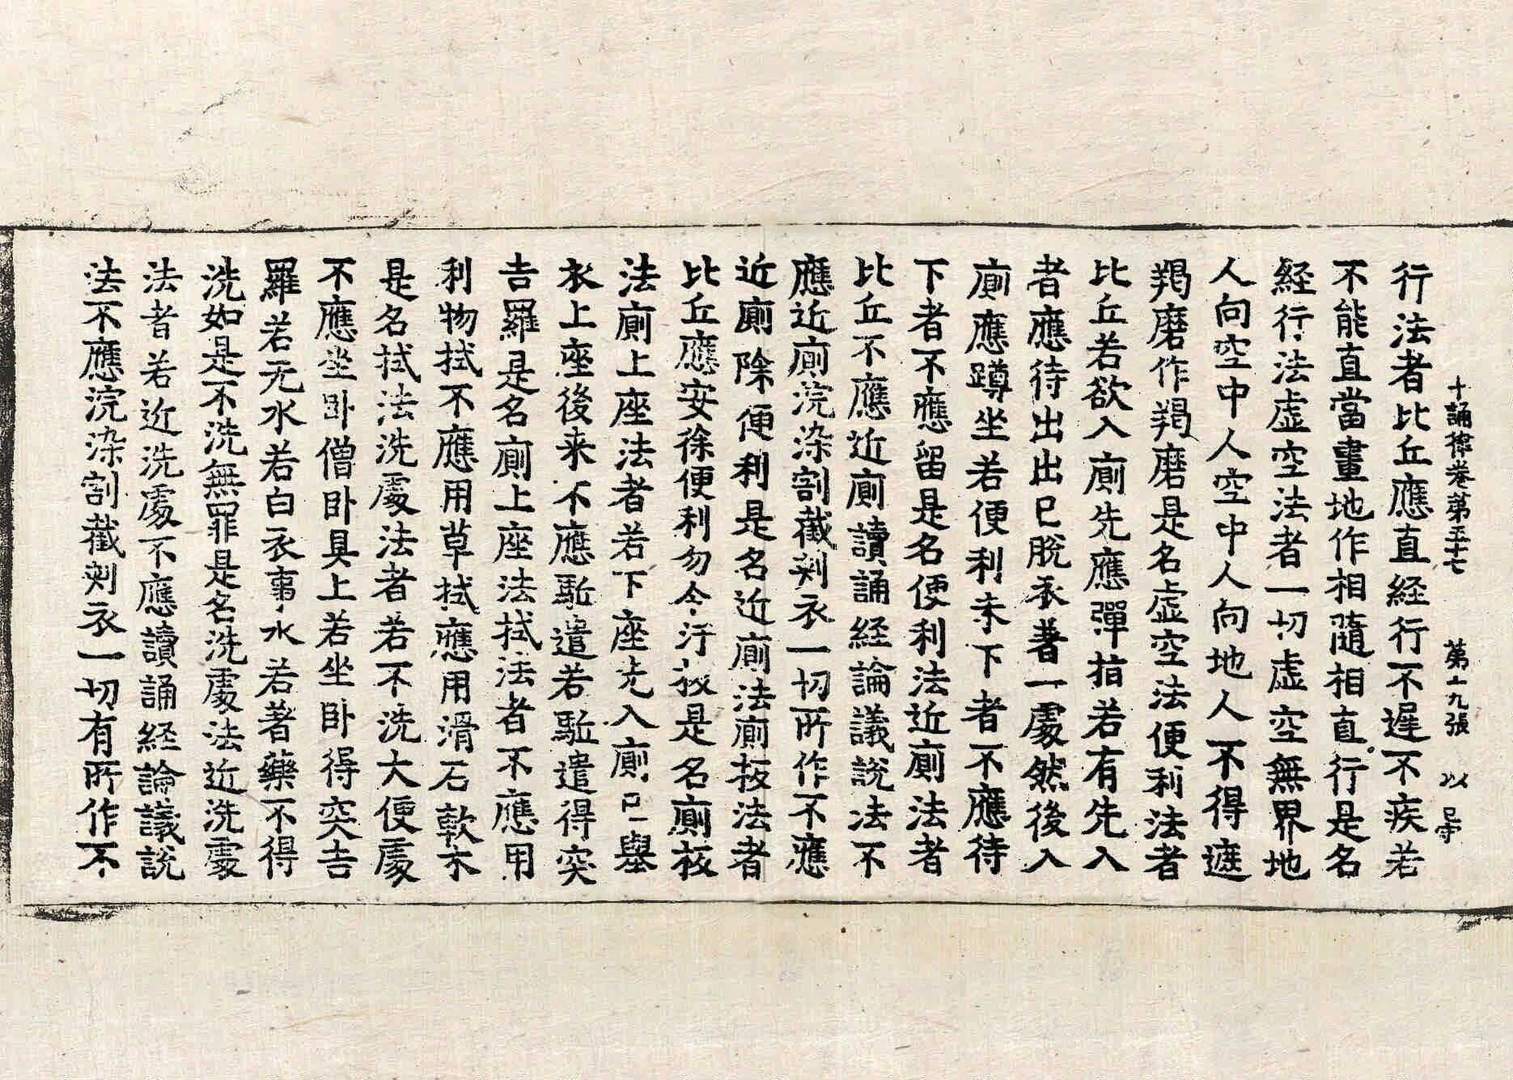 十誦律卷第五十七 第十九張 以号
行法者比丘應直経行不遲不疾若
不能直當畫地作相隨相直行是名
経行法虛空法者一切虛空無界地
人向空中人空中人向地人不得遮
羯磨作羯磨是名虛空法便利法者
比丘若欲入廁先應彈指若有先入
者應待出出已脫衣著一處然後入
廁應蹲坐若便利未下者不應待
下者不應留是名便利法近廁法者
比丘不應近廁讀誦経論議說法不
應近廁浣染割截剌衣一切所作不應
近廁除便利是名近廁法廁板法者
比丘應安徐便利勿令汙板是名廁板
法廁上座法者若下座先入廁已舉
衣上座後来不應駈遣若駈遣得突
吉羅是名廁上座法拭法者不應用
利物拭不應用草拭應用滑石軟木
是名拭法洗處法者若不洗大便處
不應坐卧僧卧具上若坐卧得突吉
羅若无水若白衣事水若著藥不得
洗如是不洗無罪是名洗處法近洗處
法者若近洗處不應讀誦経論議說
法不應浣染割截剌衣一切有所作不